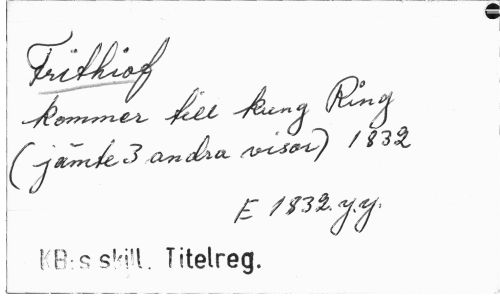 Frithiof
kommer till kung Ring
(jämte 3 andra visor) 1832
E 1832.y.y.
KB:s skill. Titelreg.